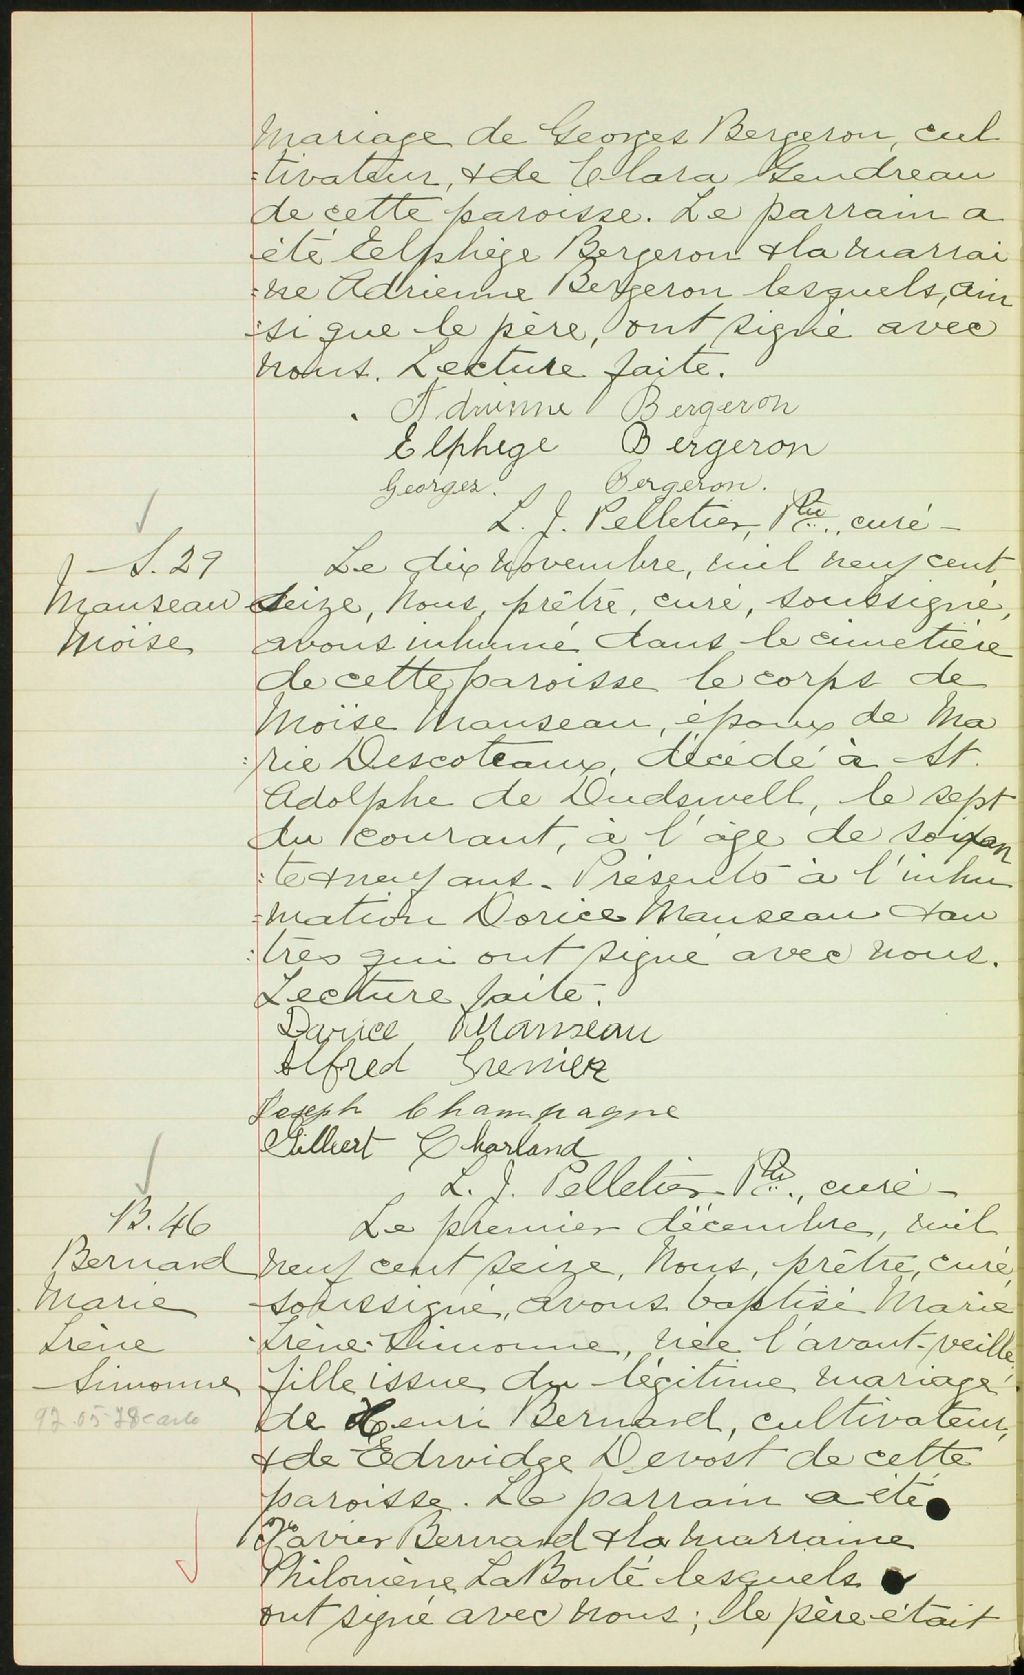 Mariage de Georges Bergeron, cul
=tivateur, & de Clara Gendreau
de cette paroisse. Le parrain a
été Elphège Bergeron & la marrai
=ne Adrienne Bergeron lesquels, ain
=si que le père, ont signé avec
nous. Lecture faite.
Adrienne Bergeron
Elphege Bergeron
Georges. Bergeron.
L. J. Pelletier, Ptre, curé -
S. 29
Manseau
Moïse
Le dix novembre, mil neuf cent
seize, Nous, prêtre, curé, soussigné,
avons inhumé dans le cimetière
de cette paroisse le corps de
Moïse Manseau, époux de Ma
=rie Descoteaux, décédé à St.
Adolphe de Dudswell, le sept
du courant, à l'âge de soixan
=te & neuf ans. Présents à l'inhu
=mation Dorice Manseau & au
=tres qui ont signé avec nous.
Lecture faite.
Dorice Manseau
Alfred Grenier
Joseph Champagne
Gilbert Charland
L. J. Pelletier Ptre, curé -
B. 46
Bernard
Marie
Irène
Simonne
92-05-28 carlo
Le premier décembre, mil
neuf cent seize, Nous, prêtre, curé,
soussigné, avons baptisé Marie
Irène-Simonne, née l'avant-veille,
fille issue du légitime mariage
de Henri Bernard, cultivateur,
& de Edwidge Devost de cette
paroisse. Le parrain a été
Xavier Bernard & la marraine
Philomène LaBonté lesquels
ont signé avec nous; le père était